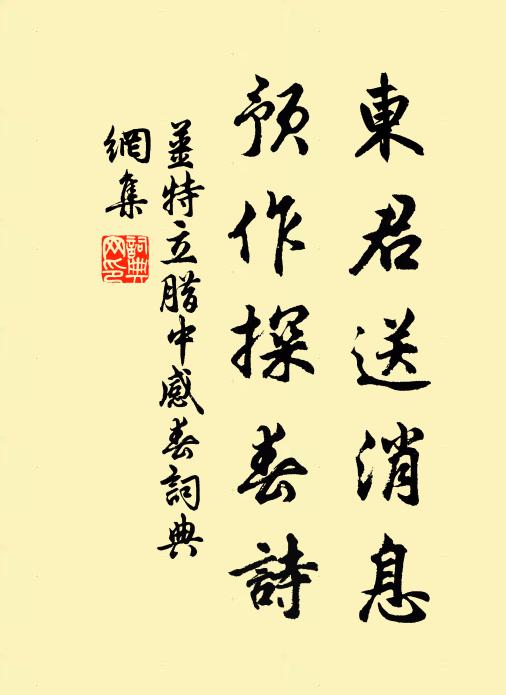 東君送消息
預作探春詩
姜特立腊中感春詞典
網集
詞典
网印